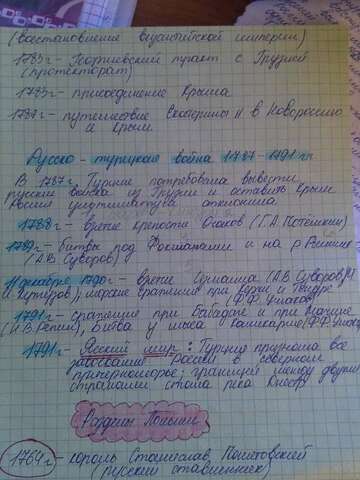 (восстановление византийской империи)
1783г - Георгиевский тракт с Грузией
(протекторат)
1783г - присоединение Крыма
1787г - путешествие Екатерины II в Новороссию
и Крым
Русско - турецкая война 1787-1791 гг
В 1787г. Турция потребовала вывести
русские войска из Грузии и оставить Крым
Россия ультиматум отклонила.
1788г - взятие крепости Очаков (Г.А Потёмкин)
1789г - битвы под Фокшанами и на р. Рымник
(А.В Суворов)
11 декабря 1790г - взятие Измаила (А.В Суворов, М
И Кутузов); морские сражения при Керчи и Тендре
(Ф.Ф. Ушаков)
1791г - сражения при Бабадаге и при Мачине
(Н.В Репин), Битва у мыса Калиакрие (Ф.Ф. Ушаков
1791г - Ясский мир: Турция признала все
завоевания России в северном
причерноморье; границей между двумя
странами стала река Днестр
Разделы Польши
1764г - король Станислав Понятовский
(русский ставленник)